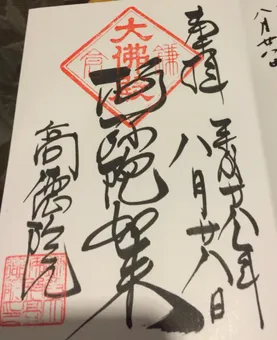 奉拝
平成廿八年
八月廿八日
大佛殿
鎌倉
阿弥陀如来
高徳院